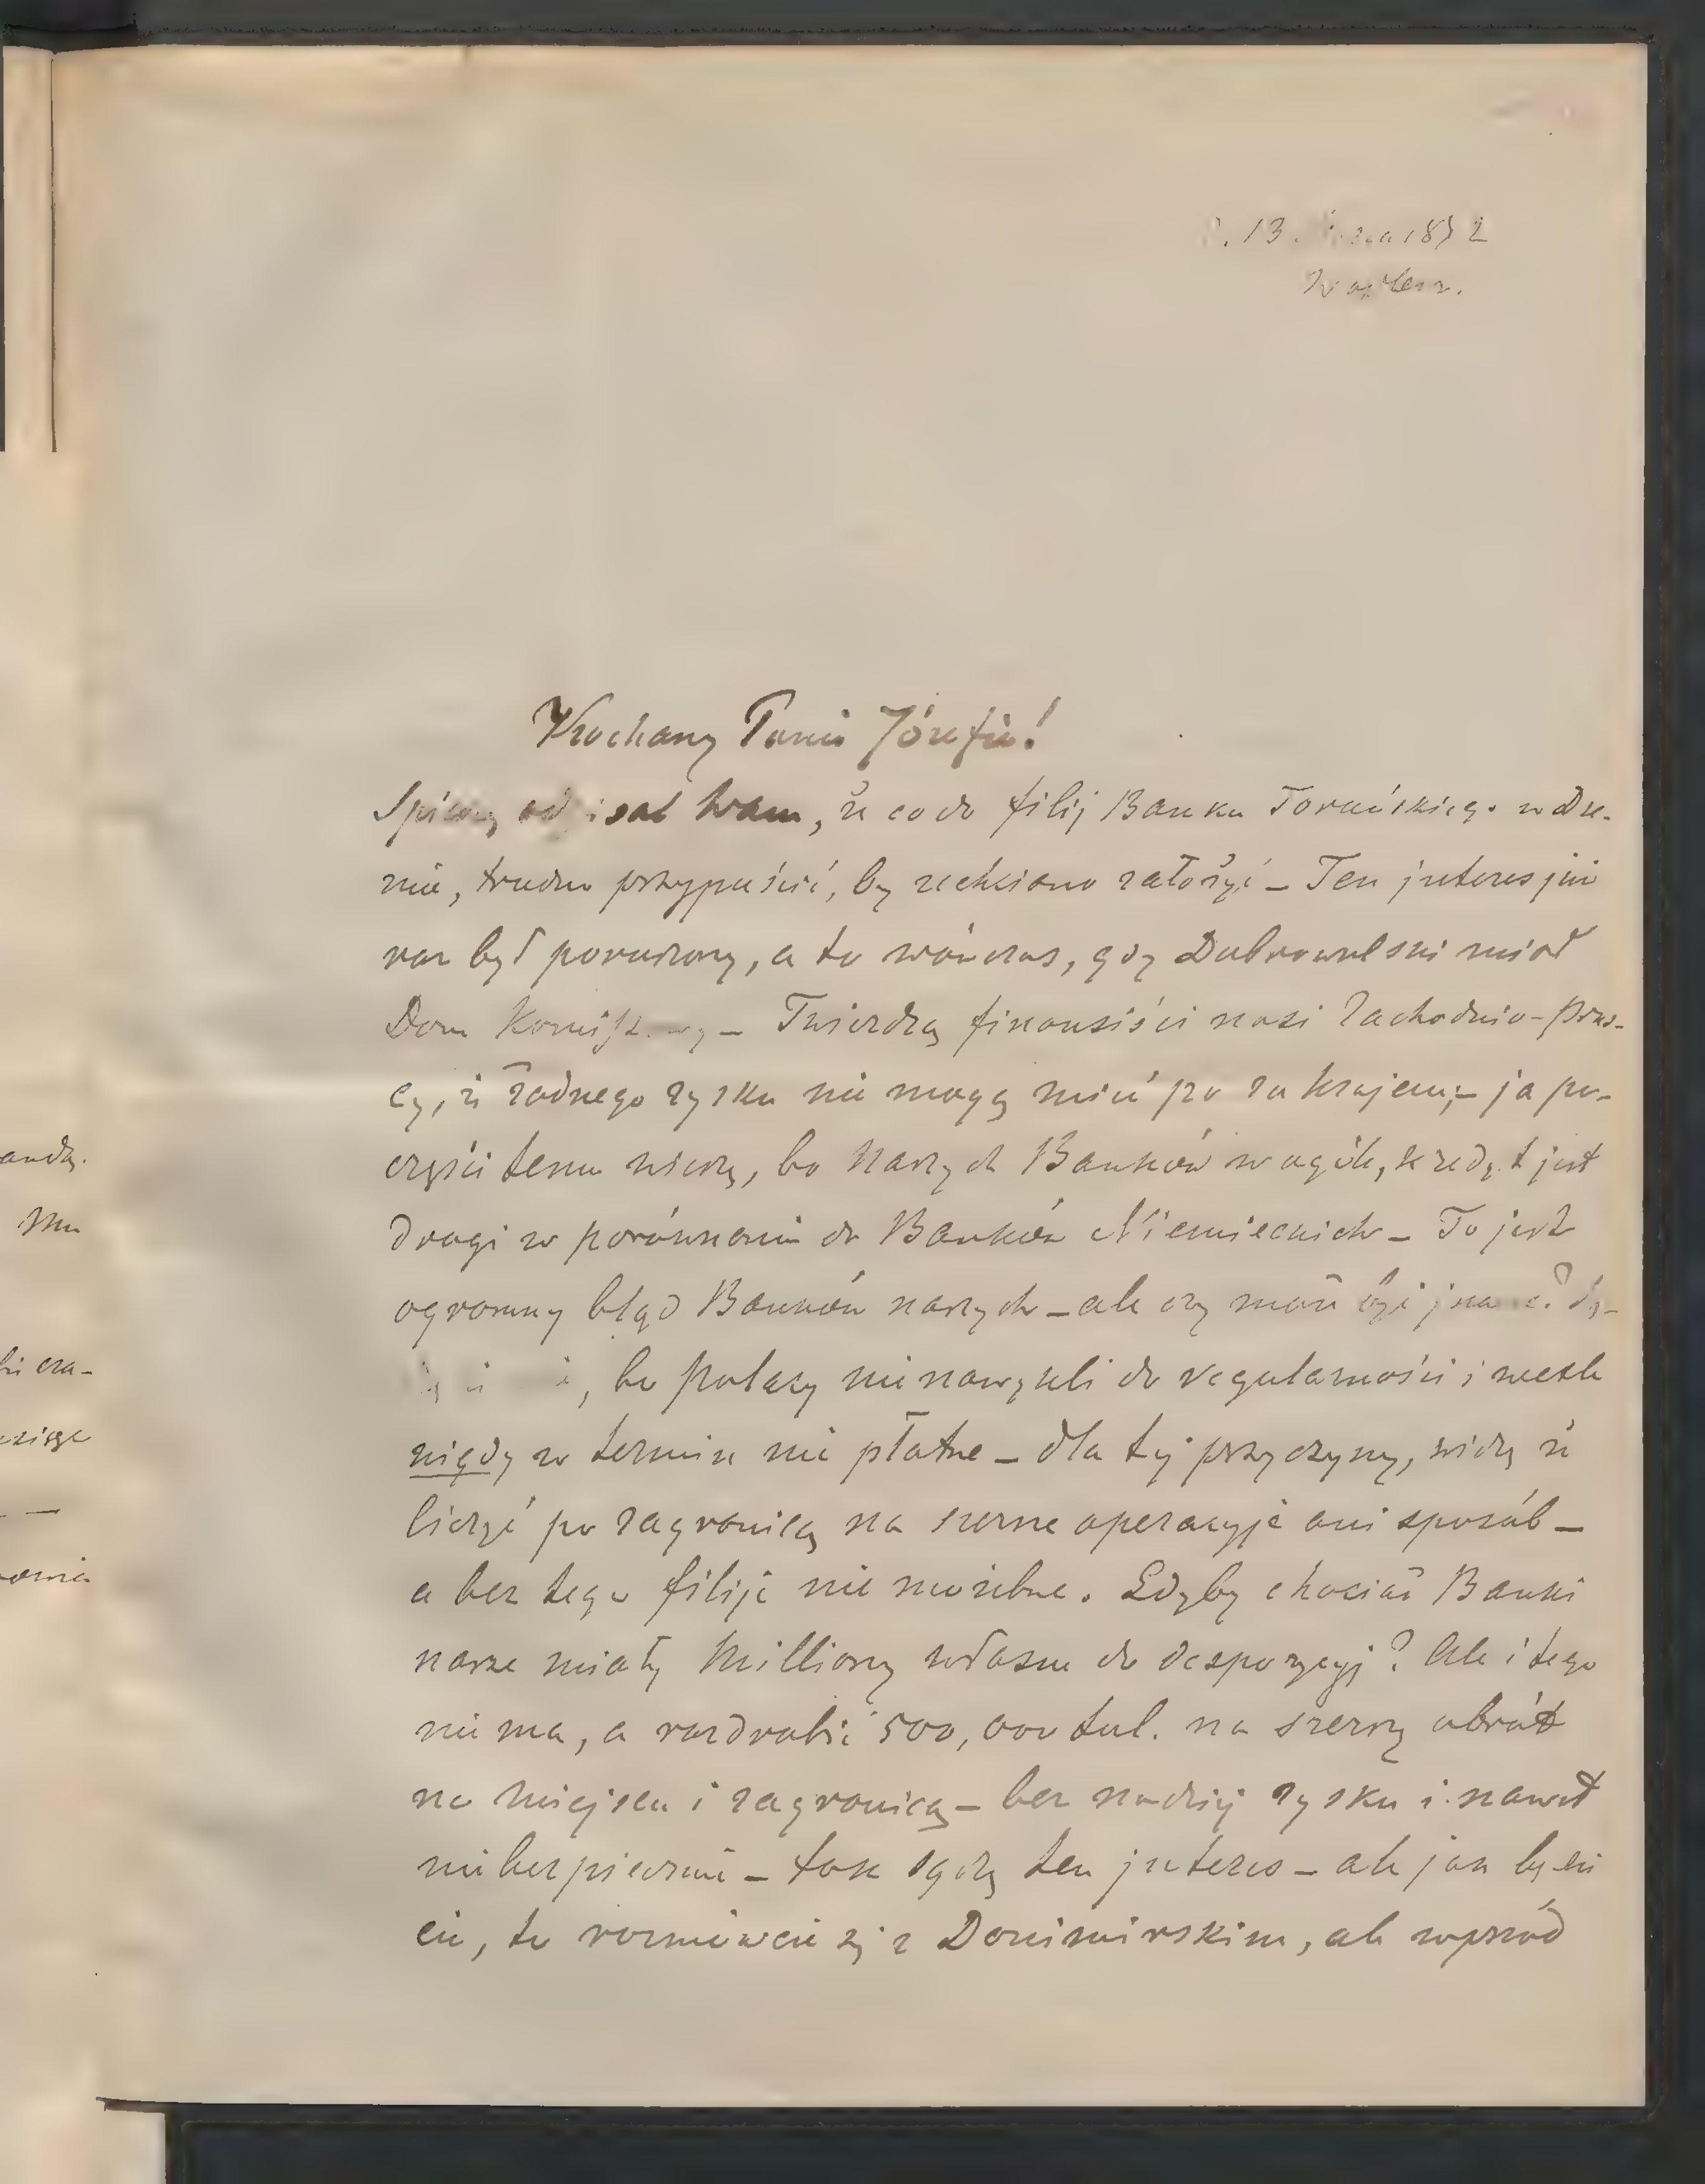 13. 1872
Kochany Panie Józefie!
Spieszę odpisać Wam, że co do filij Banku Toruńskiego w Dre-
nie, trudno przypuścić, by zechciano założyć – Ten jnteres już
raz był poruszony, a to wówczas, gdy Dobrowolski miał
Dom – Twierdzą finansiści nasi Zachodnio-prus-
cy, iż żadnego zysku nie mogą mieć po za krajem; – ja po-
części temu wierzę, bo naszych Banków w ogóle, kredyt jest
drogi w porównaniu do Banków Niemieckich – To jest
ogromny błąd Banków naszych – ale czy może być
, bo polacy nie nawykli do regularności i weksle
nigdy w termin nie płatne – dla tej przyczyny, widzę iż
liczyć po zagranicą na szersze operacyje ani sposób –
a bez tego filije nie możebne. Gdyby chociaż Banki
nasze miały Milliony własne do despozycyj? Ale i tego
nie ma, a rozdrobić 500,000 tal. na szerszy obrót
na miejscu i zagranicą – bez nadziej zysku i nawet
niebezpiecznie – tak sądzę ten jnteres – ale jak będzie
cie, to rozmówcie się z Donimirskim, ale wprzód